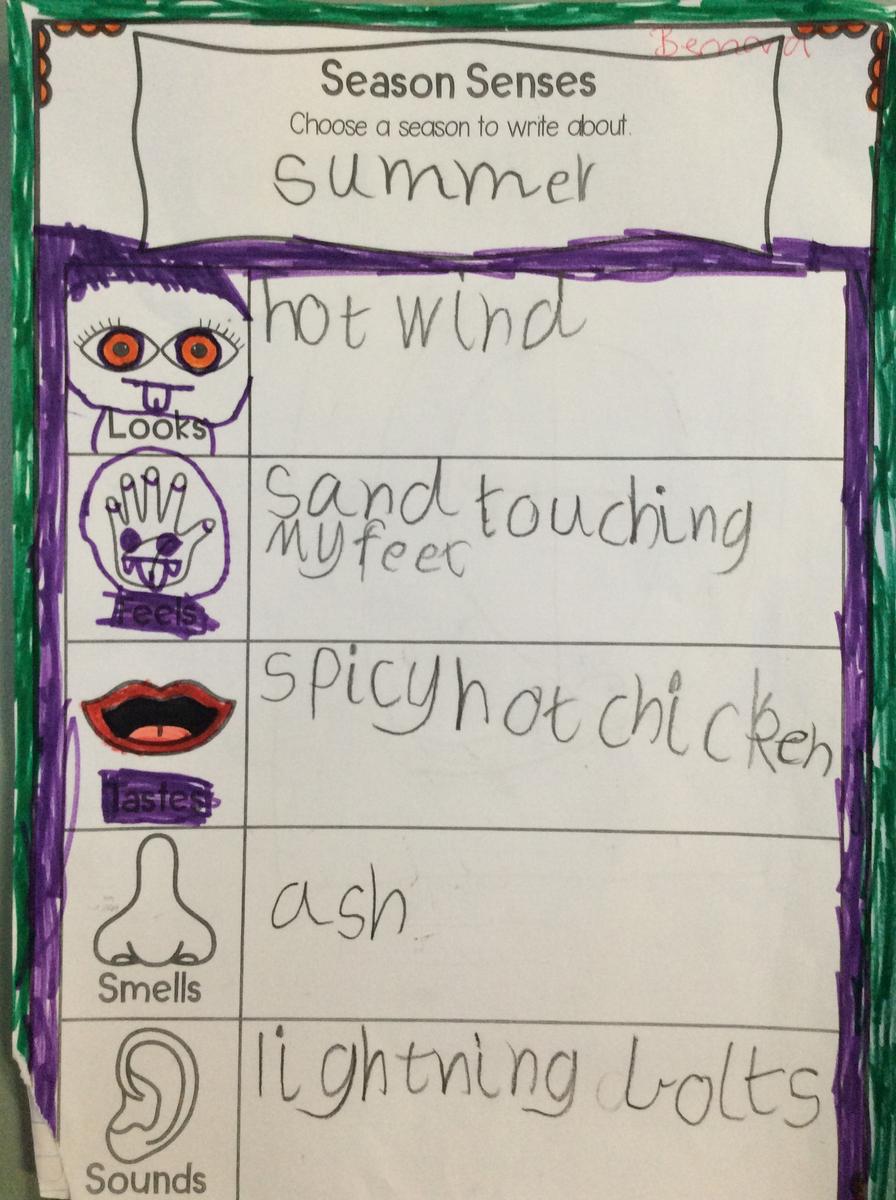 Bernard
Season Senses
Choose a season to write about.
summer
hot wind
Looks
Sand touching
My feet
Feels
Spicy hot chicken
Tastes
ash
Smells
lightning bolts
Sounds